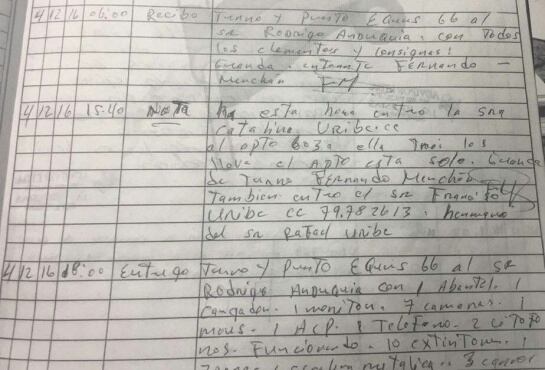 4 12 16 06:00 Recibo Turno y Puesto EQuus 66 al
sr Rodrigo Anduquia. con Todos
los elementos y consignas:
Guarda. entrante FERnando —
Menchán
4 12 16 15:40 NOTA A esta hora entro la sra
Catalina Uribe. cc
al apto 603. ella Trai los
llave el APTO esta solo. Guarda
de Turno FERNando Menchán
Tambien entro el sr Francisco
Uribe cc 79.782613. hermano
del sr Rafael Uribe
4 12 16 18:00 Entrego Turno y Puesto EQuus 66 al sr
Rodrigo Anduquia con 1 Abantel. 1
Cargador. 1 monitor. 7 camaras. 1
mous. 1 ACP. 1 Telefono. 2 citofo
nos. Funcionando. 10 extintores. 1
1 escalera metalica. 3